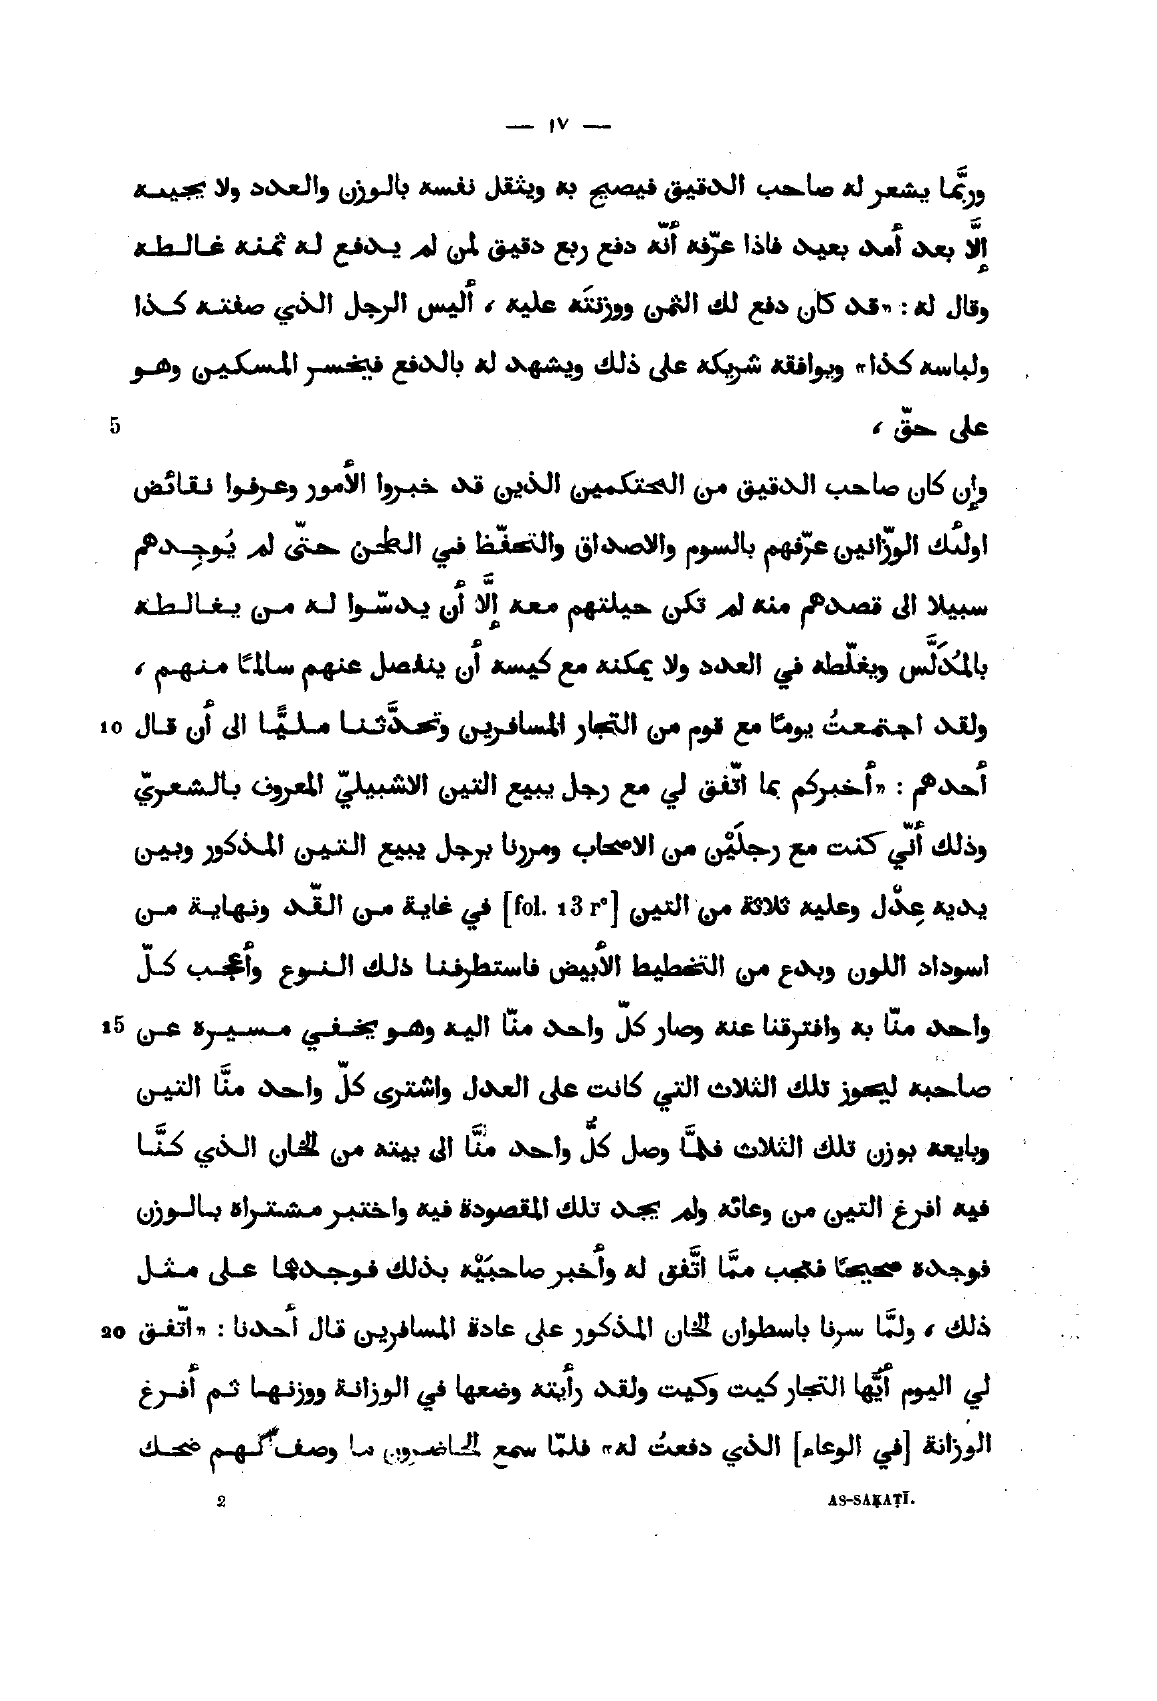 — ١٧ —
وربَّما يشعر له صاحب الدقيق فيصيح به ويثقل نفسه بالوزن والعدد ولا يجيبه
إلَّا بعد أمد بعيد فاذا عرّفه أنّه دفع ربع دقيق لمن لم يدفع له ثمنه غالطه
وقال له : «قد كان دفع لك الثمن ووزنتَه عليه ، أليس الرجل الذي صفته كذا
ولباسه كذا» ويوافقه شريكه على ذلك ويشهد له بالدفع فيخسر المسكين وهو
على حقّ ، 5
وإن كان صاحب الدقيق من المحتكمين الذين قد خبروا الأمور وعرفوا نقائض
اولئك الوزّانين عرّفهم بالسوم والاصداق والتحفّظ في الطحن حتّى لم يُوجِدهم
سبيلا الى قصدهم منه لم تكن حيلتهم معه إلَّا أن يدسّوا له من يغالطه
بالمُدَلَّس ويغلّطه في العدد ولا يمكنه مع كيسه أن ينفصل عنهم سالمًا منهم ،
ولقد اجتمعتُ يومًا مع قوم من التجار المسافرين وتحدَّثنا مليًّا الى أن قال 10
أحدهم : «أخبركم بما اتّفق لي مع رجل يبيع التين الاشبيليّ المعروف بالشعريّ
وذلك أنّي كنت مع رجلَيْن من الاصحاب ومررنا برجل يبيع التين المذكور وبين
يديه عِدْل وعليه ثلاثة من التين [fol. 13 r°] في غاية من القّد ونهاية من
اسوداد اللون وبدع من التخطيط الأبيض فاستطرفنا ذلك النوع وأعجب كلّ
واحد منّا به وافترقنا عنه وصار كلّ واحد منّا اليه وهو يخفي مسيره عن 15
صاحبه ليحوز تلك الثلاث التي كانت على العدل واشترى كلّ واحد منَّا التين
وبايعه بوزن تلك الثلاث فلمَّا وصل كلُّ واحد منَّا الى بيته من الخان الذي كنَّا
فيه افرغ التين من وعائه ولم يجد تلك المقصودة فيه واختبر مشتراه بالوزن
فوجده صحيحًا فعجب ممَّا اتَّفق له وأخبر صاحبَيْه بذلك فوجدها على مثل
ذلك ، ولمَّا سرنا باسطوان الخان المذكور على عادة المسافرين قال أحدنا : «اتّفق 20
لي اليوم أيُّها التجار كيت وكيت ولقد رأيته وضعها في الوزانة ووزنها ثم أفرغ
الوزانة [في الوعاء] الذي دفعتُ له» فلمّا سمع الحاضرون ما وصف لهم ضحك
2 AS-SAḲAṬĪ.